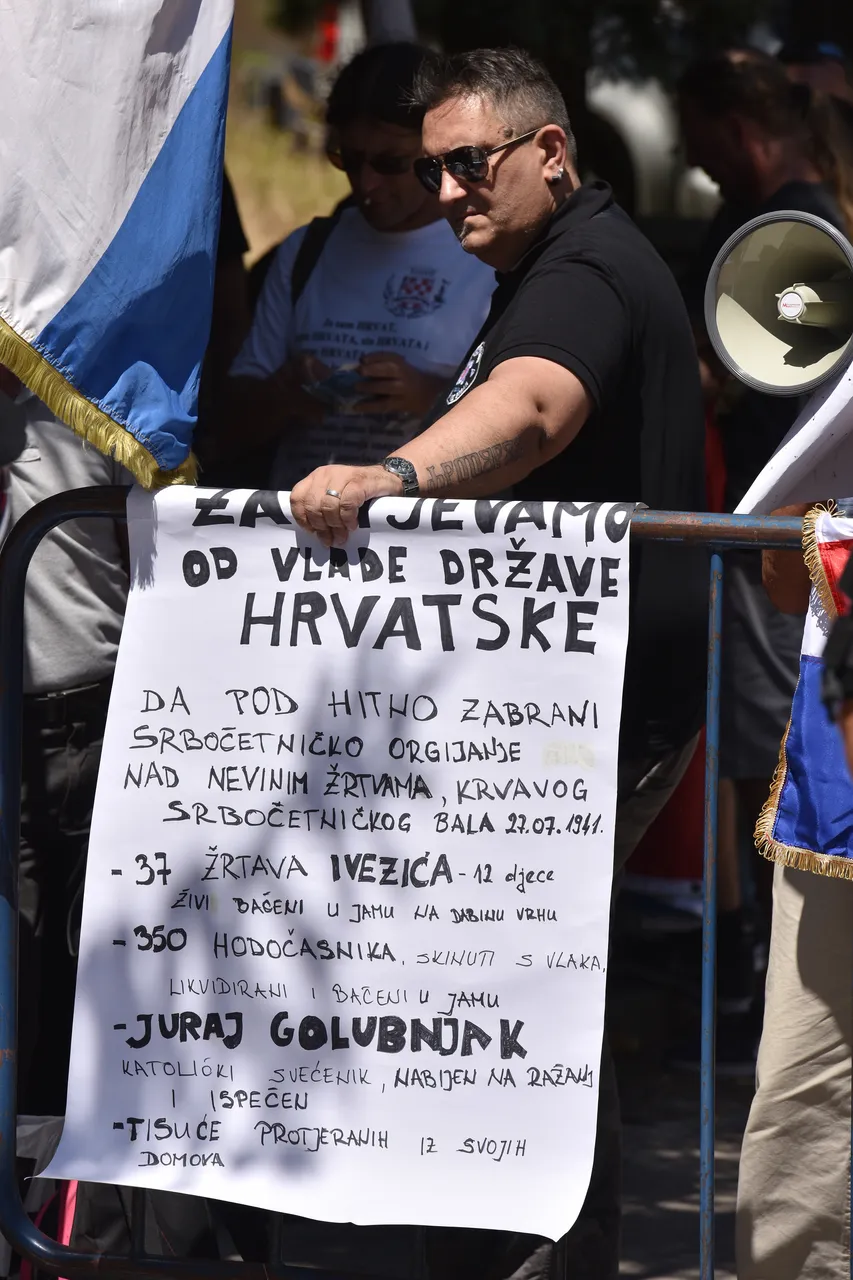 Ja sam HRVAT,
ZAHTIJEVAMO
OD VLADE DRŽAVE
HRVATSKE
DA POD HITNO ZABRANI
SRBOČETNIČKO ORGIJANJE
NAD NEVINIM ŽRTVAMA, KRVAVOG
SRBOČETNIČKOG BALA 27.07.1941.
- 37 ŽRTAVA IVEZIĆA - 12 djece
ŽIVI BAČENI U JAMU NA DABINU VRHU
- 350 HODOČASNIKA, SKINUTI S VLAKA,
LIKVIDIRANI I BAČENI U JAMU
- JURAJ GOLUBNJAK
KATOLIČKI SVEĆENIK, NABIJEN NA RAŽANJ
I ISPEČEN
- TISUĆE PROTJERANIH IZ SVOJIH
DOMOVA